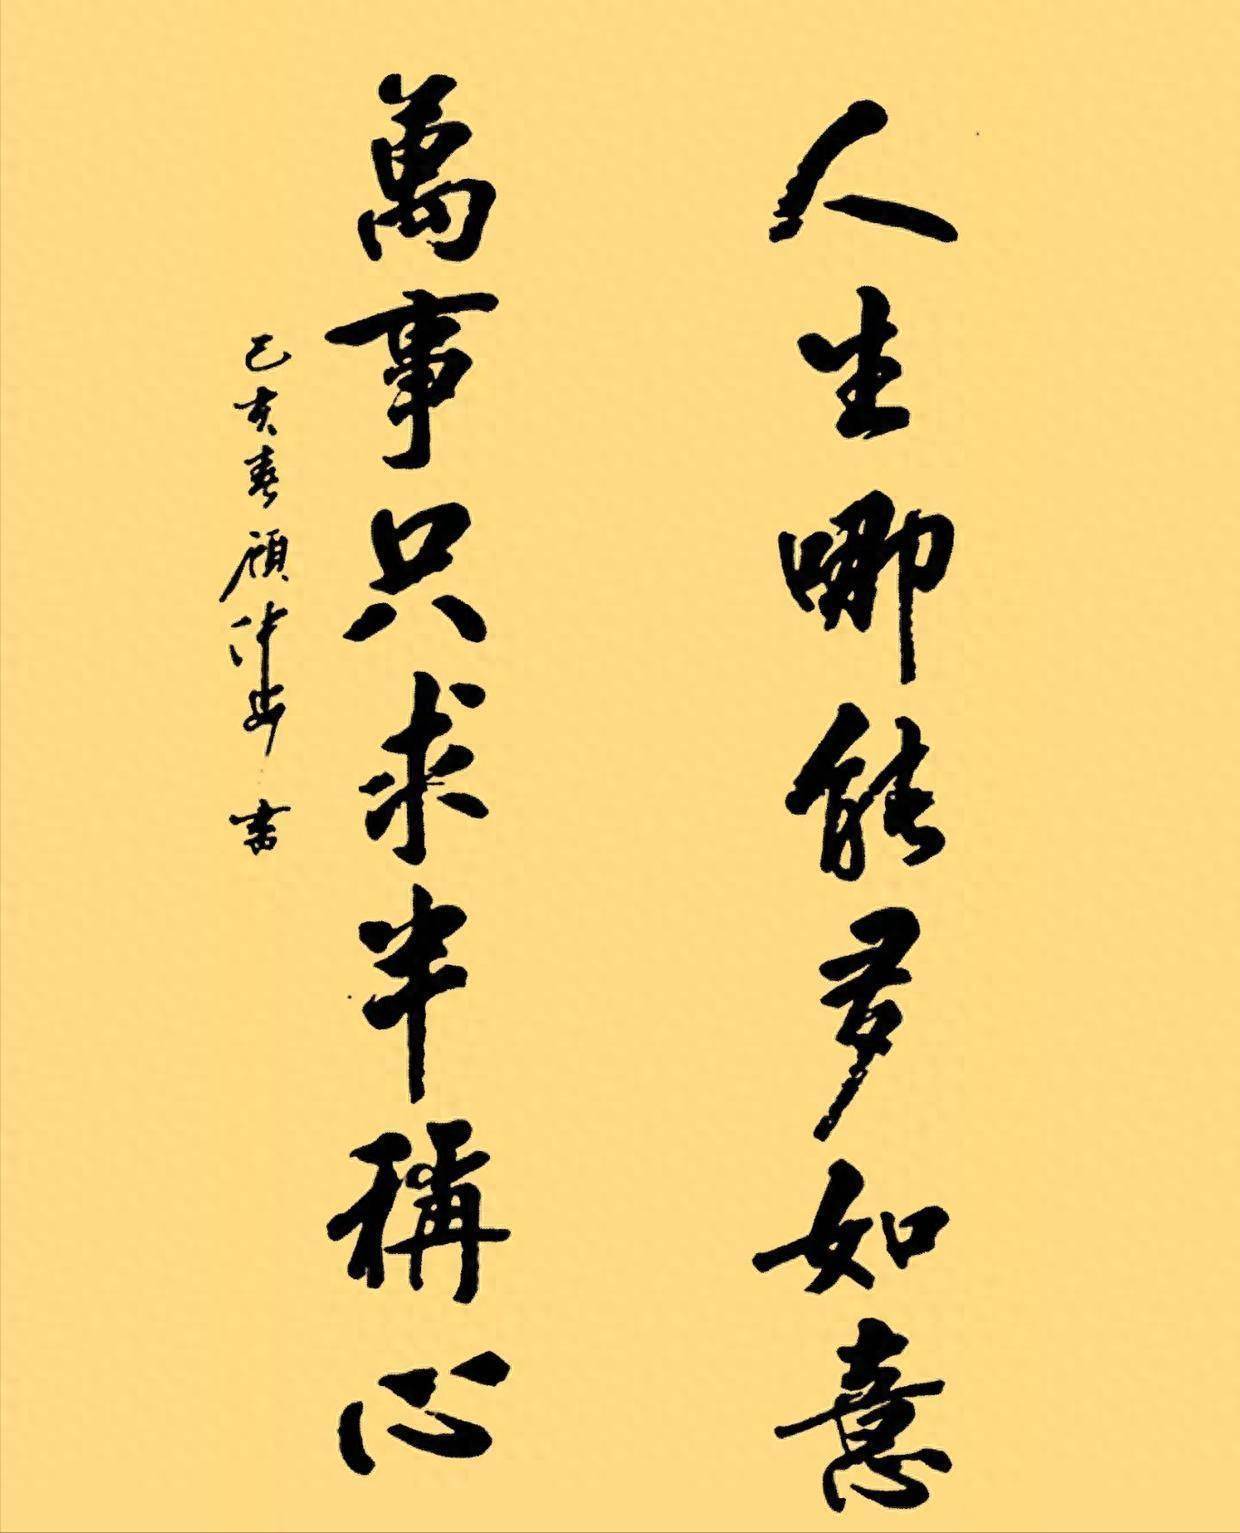 人生哪能多如意
萬事只求半稱心
己亥春顾沛安書